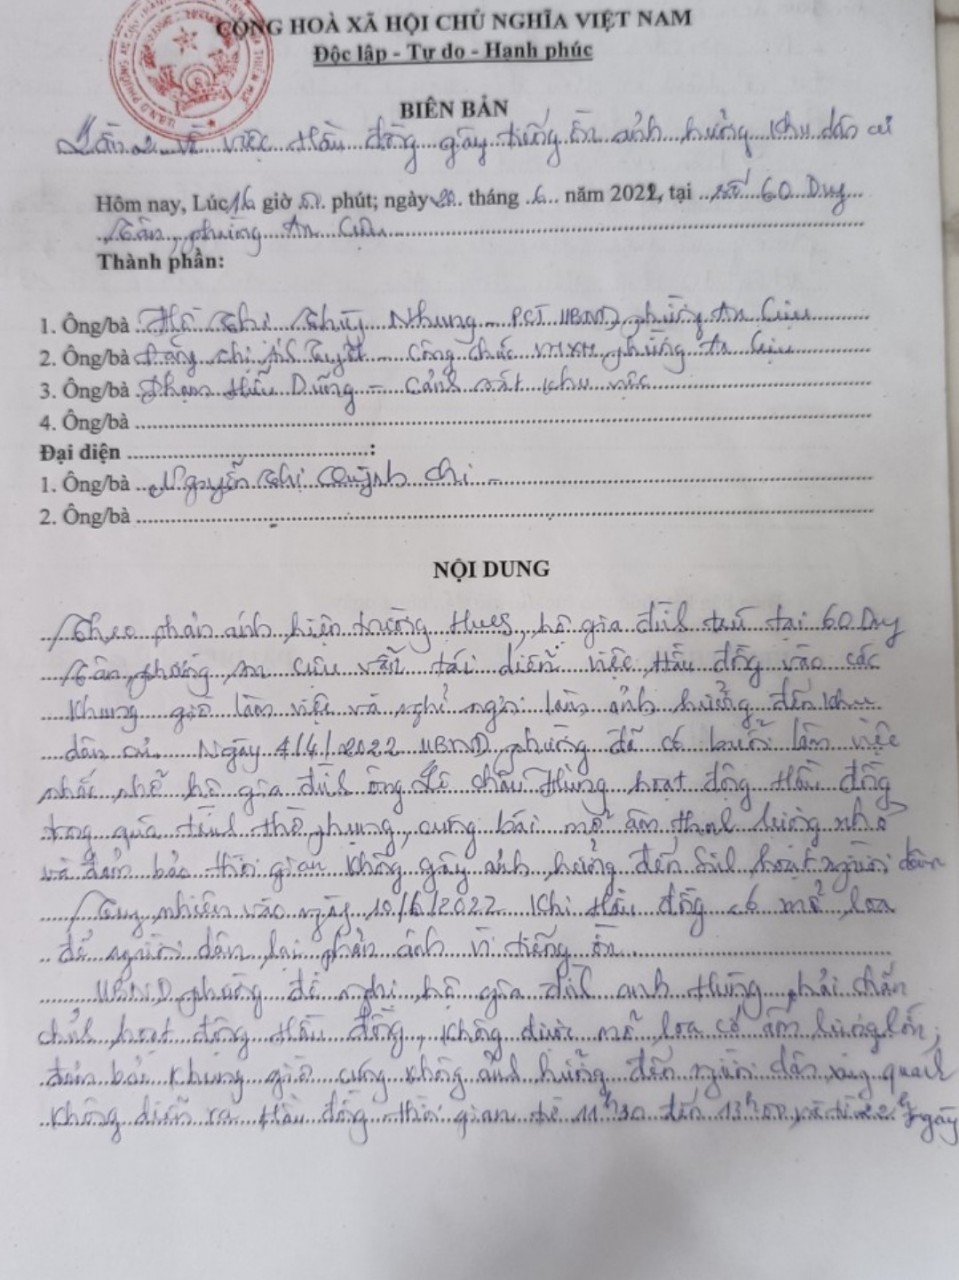 CỘNG HOÀ XÃ HỘI CHỦ NGHĨA VIỆT NAM
Độc lập - Tự do - Hạnh phúc
BIÊN BẢN
Lần 2 về việc Hầu đồng gây tiếng ồn ảnh hưởng khu dân cư
Hôm nay, Lúc 16 giờ phút; ngày 20 tháng 6 năm 2022, tại số 60 Duy
Tân, phường An Cựu
Thành phần:
1. Ông/bà Hồ Thị Thùy Nhung - PCT UBND phường An Cựu
2. Ông/bà Đặng Thị Tuyết - Công chức VHXH phường An Cựu
3. Ông/bà Phạm Hữu Dũng - Cảnh sát khu vực
4. Ông/bà
Đại diện :
1. Ông/bà Nguyễn Thị Quỳnh Chi -
2. Ông/bà
NỘI DUNG
Theo phản ánh hiện trường HueS, hộ gia đình trú tại 60 Duy
Tân phường An Cựu vẫn tái diễn việc Hầu đồng vào các
khung giờ làm việc và nghỉ ngơi làm ảnh hưởng đến khu
dân cư. Ngày 4/4/2022 UBND phường đã có buổi làm việc
nhắc nhở hộ gia đình ông Lê Châu Hùng hoạt động Hầu đồng
trong quá trình thờ phụng, cúng bái mở âm thanh lượng nhỏ
và đảm bảo thời gian không gây ảnh hưởng đến sinh hoạt người dân
Tuy nhiên vào ngày 10/6/2022 khi Hầu đồng có mở loa
để người dân lại phản ánh vì tiếng ồn
UBND phường đề nghị hộ gia đình anh Hùng phải chấn
chỉnh hoạt động Hầu đồng, không được mở loa có âm lượng lớn,
đảm bảo khung giờ cúng không ảnh hưởng đến người dân xung quanh
không diễn ra Hầu đồng thời gian từ 11h30 đến 13h00 và từ 22h ngày